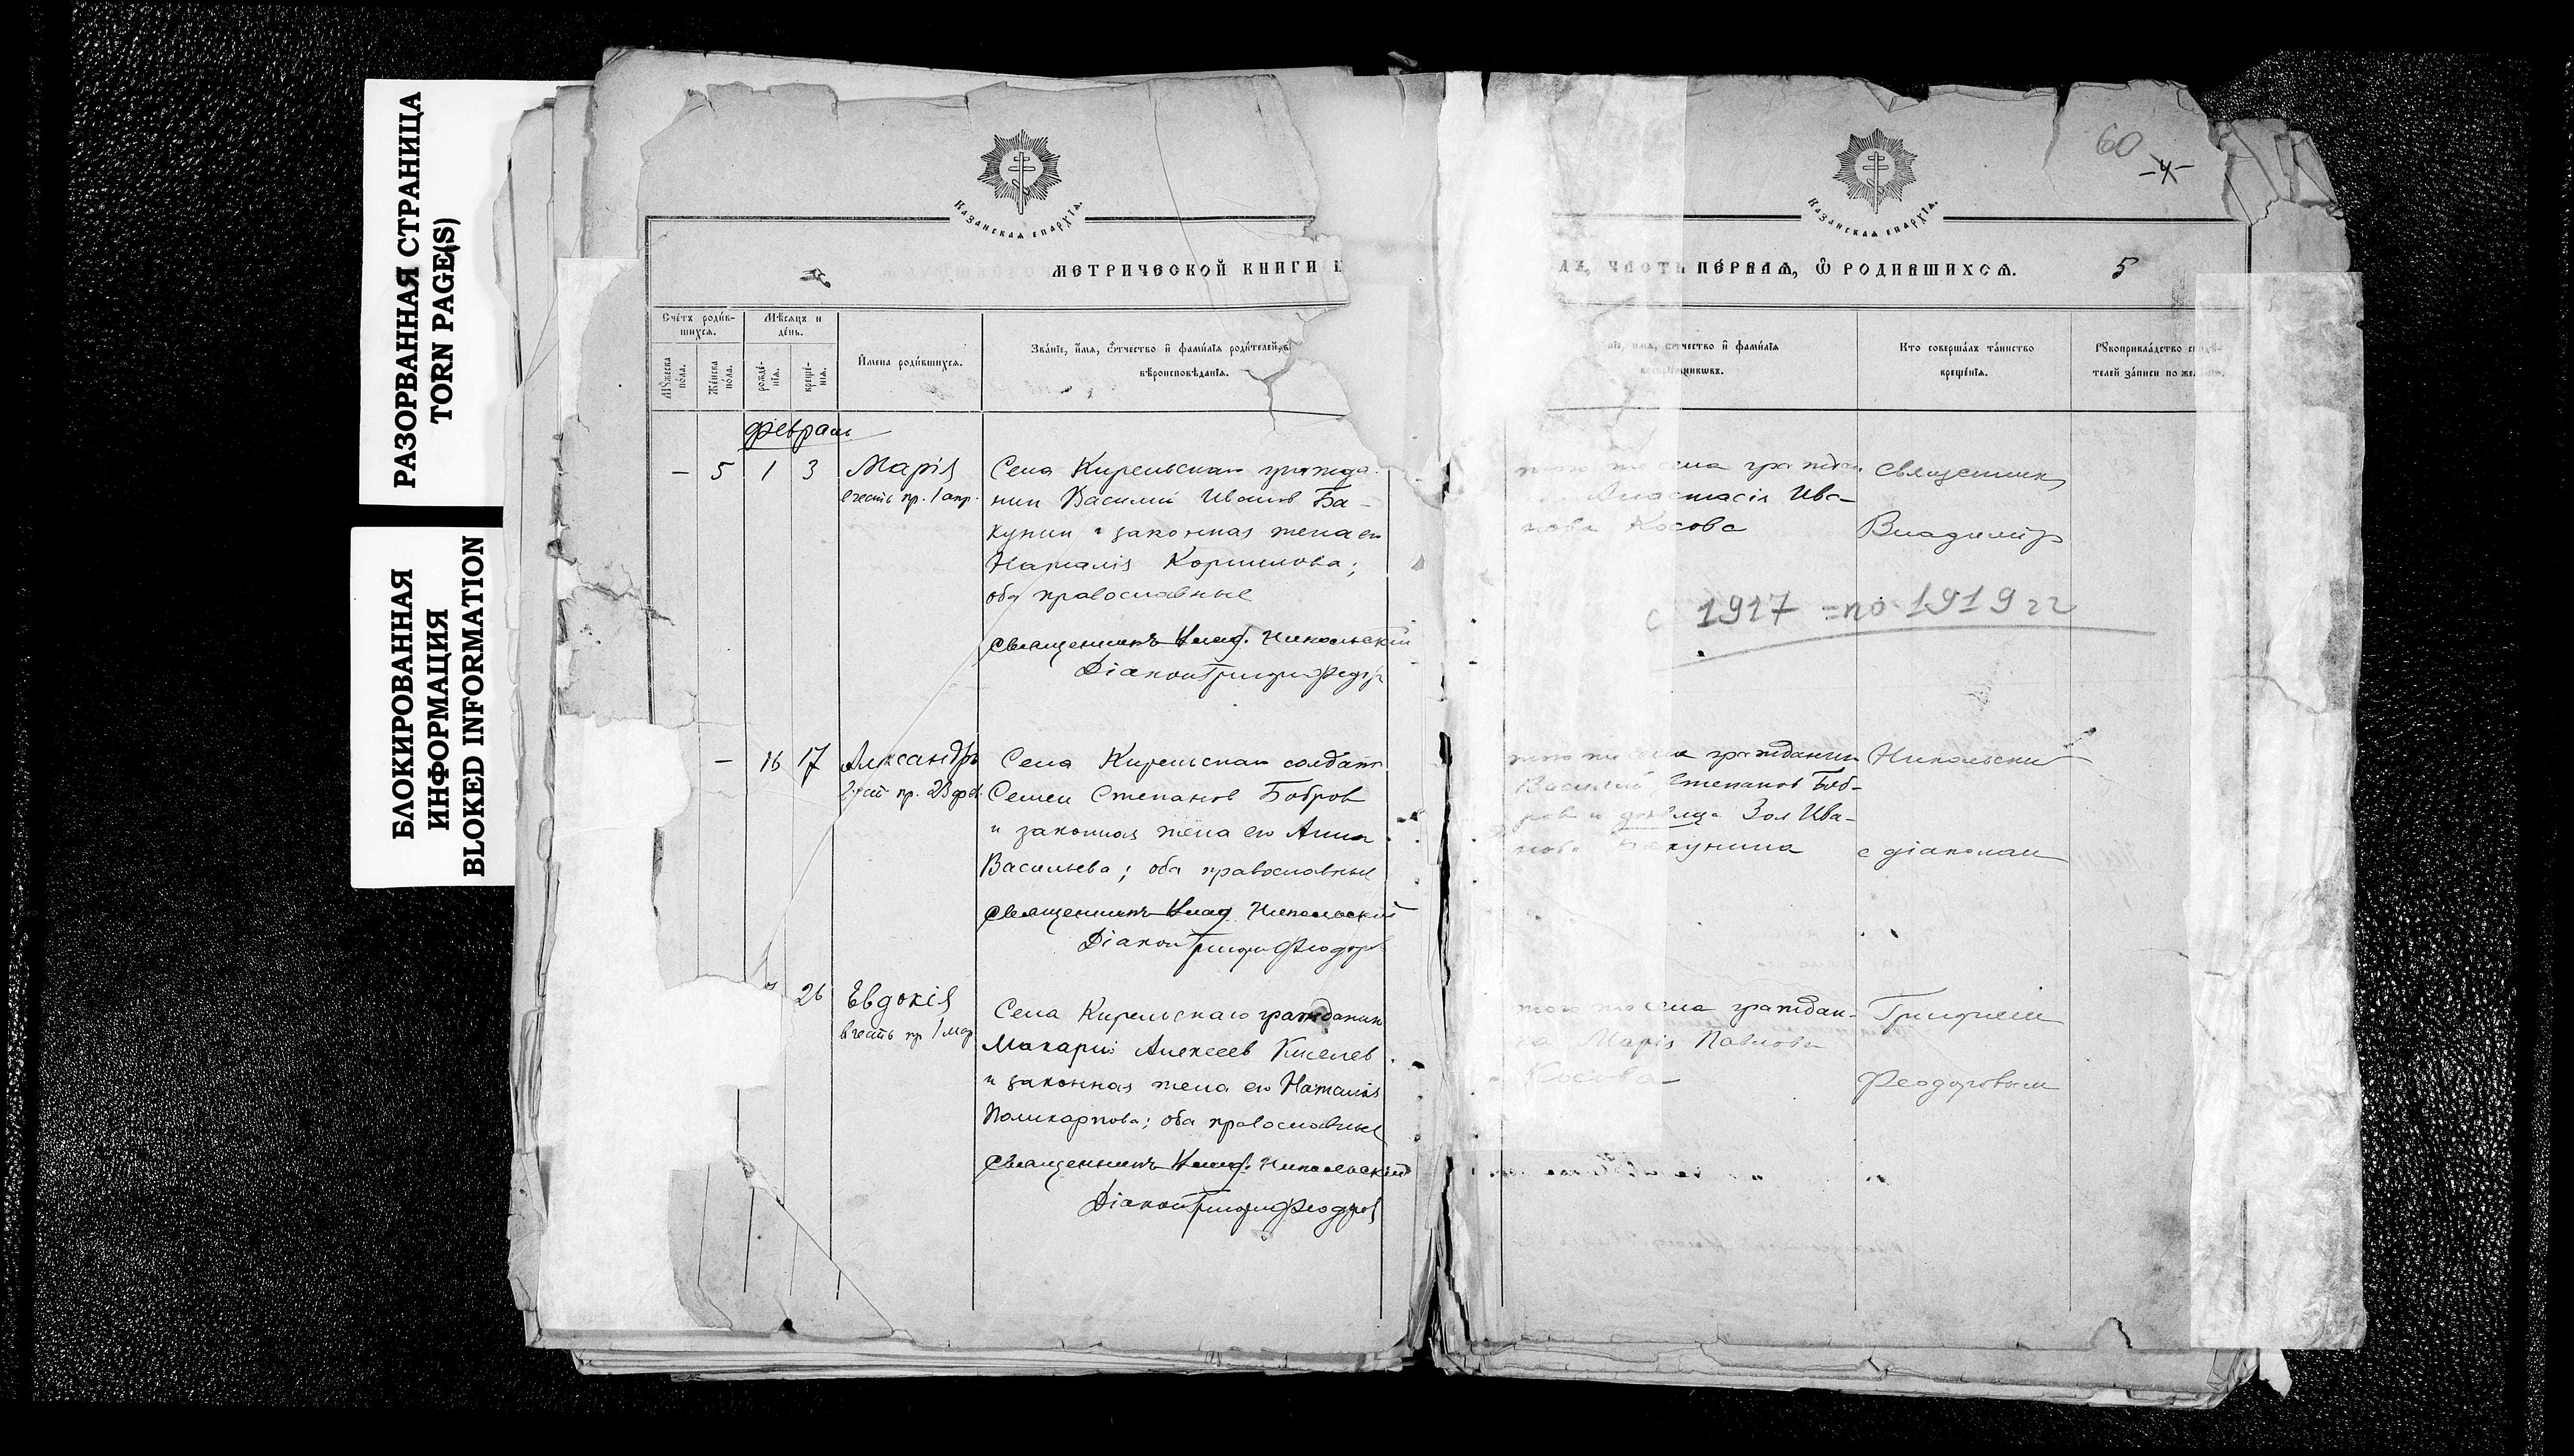 РАЗОРВАННАЯ СТРАНИЦА
TORN PAGE(S)
БЛОКИРОВАННАЯ
ИНФОРМАЦИЯ
BLOKED INFORMATION
КАЗАНСКАЯ ЕПАРХІЯ.
МЕТРИЧЕСКОЙ КНИГИ
Счетъ родив-
шихся.
Мѣсяцъ и
день.
Мужеска
пола.
Женска
пола.
рожде-
нія.
креще-
нія.
Имена родившихся.
Званіе, имя, отчество и фамилія родителей,
вѣроисповѣданія.
февраль
– 5 1 3 Марія
в честь пр. 1 апр.
Села Кирельскаго гражда-
нин Василий Иванов Ба-
кунин и законная жена его
Наталія Корнилова;
оба православные
Священникъ Влад. Никольский
Діакон Трифил Феодор
– 16 17 Александръ
в чест пр. 23 фев.
Села Кирельскаго солдат
Семен Степанов Бобров
и законная жена его Анна
Васильева; оба православные
Священникъ Влад. Никольский
Діакон Трифил Феодоров
26 Евдокія
в честь пр 1 мар.
Села Кирельскаго гражданин
Макарий Алексеев Киселев
и законная жена его Наталія
Поликарпова; оба православные
Священникъ Влад. Никольский
Діакон Трифил Феодоров
60
-4-
КАЗАНСКАЯ ЕПАРХІЯ.
ЧАСТЬ ПЕРВАЯ, Ѡ РОДИВШИХСЯ. 5
имя, отчество и фамилія
воспріемниковъ.
Кто совершалъ таинство
крещенія.
Рукоприкладство свидѣ-
телей записи по желанію.
того же села граждан
Анастасія Ива-
нова Косова
священник
Владимір
с 1917 = по 1919 гг
того же села гражданин
Василий Степанов Боб-
ров и девица Зоя Ива-
нова Бакунина
Никольский
с діаконом
того же села граждан-
ка Марія Павлова
Косова
Трифилием
Феодоровым